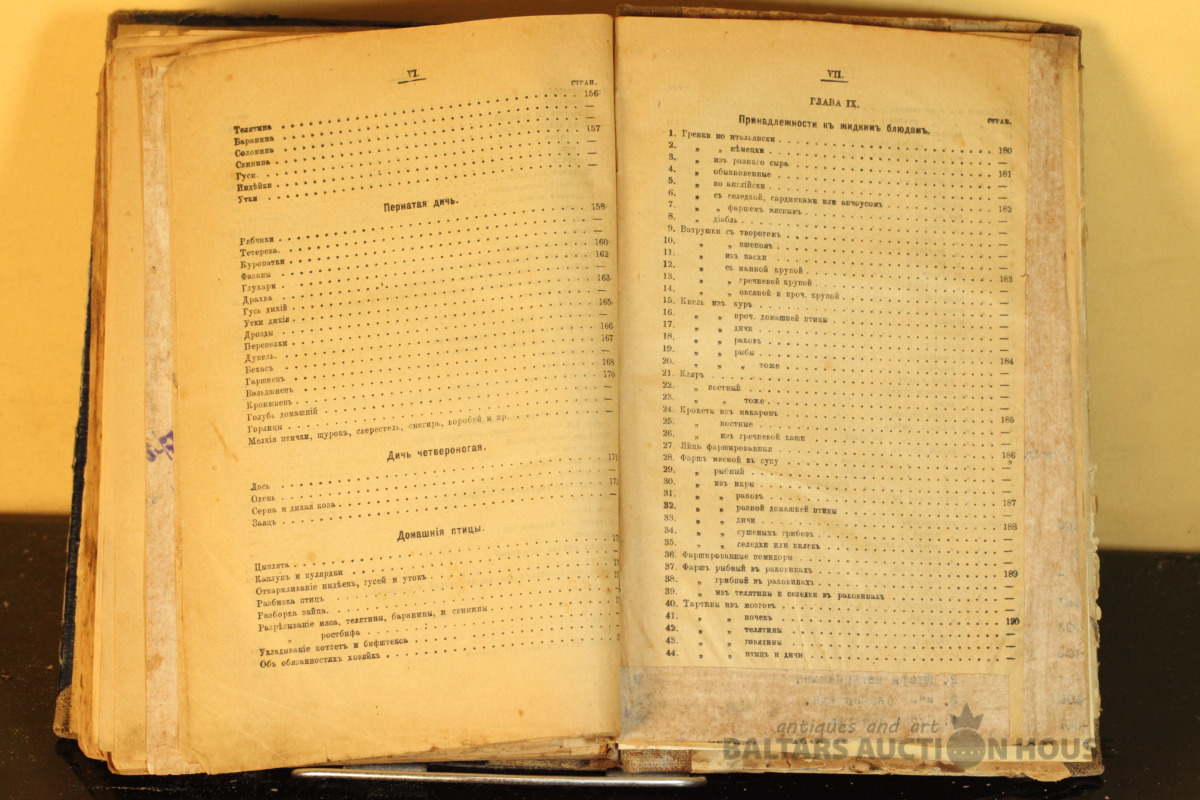 VI.
СТРАН.
Телятина 156
Баранина —
Солонина —
Свинина 157
Гуси. —
Индѣйки —
Утки —
Пернатая дичь.
Рябчики 158
Тетерева. —
Куропатки —
Фазаны 160
Глухари 162
Драхва —
Гусь дикій 163
Утки дикія —
Дрозды 165
Перепелки —
Дупель. 166
Бекасъ 167
Гаршнепъ —
Вальдшнепъ 168
Кроншнепъ 170
Голубь домашній —
Горлицы —
Мелкія птички, щурокъ, свирестель, снегирь, воробей и пр.
Дичь четвероногая.
Лось 17
Олень —
Серна и дикая коза 17
Заяцъ
Домашнія птицы.
Цыплята
Каплунъ и пулярдки
Откармливаніе индѣекъ, гусей и утокъ
Разбивка птицъ
Разборка зайца.
Разрѣзываніе мяса, телятины, баранины, и свинины
„ ростбифа
Укладываніе котлетъ и бифштекса
Объ обязанностяхъ хозяйкѣ
VII.
ГЛАВА IX.
СТРАН.
Принадлежности къ жидкимъ блюдамъ.
1. Гренки по итальянски 180
2. „ „ нѣмецки —
3. „ изъ разнаго сыра 181
4. „ обыкновенные —
5. „ по англійски —
6. „ съ селедкой, сардинками или анчоусомъ 182
7. „ „ фаршемъ мяснымъ —
8. „ діабль —
9. Ватрушки съ творогомъ —
10. „ „ пшеномъ —
11. „ изъ каски —
12. „ съ манной крупой 183
13. „ „ гречневой крупой —
14. „ „ овсяной и проч. крупой —
15. Кнель изъ куръ —
16. „ „ проч. домашней птицы —
17. „ „ дичи —
18. „ „ раковъ —
19. „ „ рыбы 184
20. „ „ „ тоже —
21. Кляръ —
22. „ постный —
23. „ „ тоже —
24. Крокеты изъ макаронъ 185
25. „ постные —
26. „ изъ гречневой каши —
27. Яйца фаршированныя 186
28. Фаршъ мясной къ супу „
29. „ рыбный —
30. „ изъ икры —
31. „ „ раковъ 187
32. „ „ разной домашней птицы —
33. „ „ дичи 188
34. „ „ сушеныхъ грибовъ —
35. „ „ селедки или килекъ —
36. Фаршированные помидоры —
37. Фаршъ рыбный въ раковинахъ 189
38. „ грибной въ раковинахъ —
39. „ изъ телятины и селедки въ раковинахъ —
40. Тартины изъ мозговъ —
41. „ „ почекъ 190
42. „ „ телятины —
43. „ „ говядины —
44. „ „ птицъ и дичи —
antiques and art
BALTARS AUCTION HOUSE